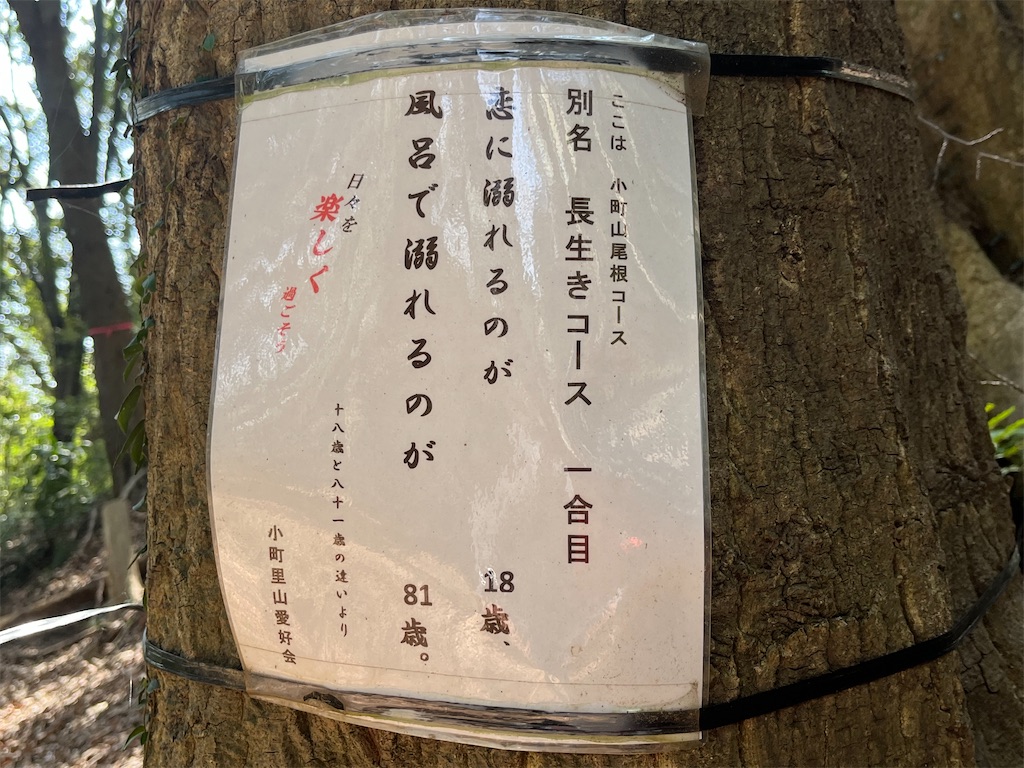 ここは 小町山尾根コース
別名 長生きコース 一合目
恋に溺れるのが 18歳、
風呂で溺れるのが 81歳。
日々を
楽しく
過ごそう
十八歳と八十一歳の違いより
小町里山愛好会